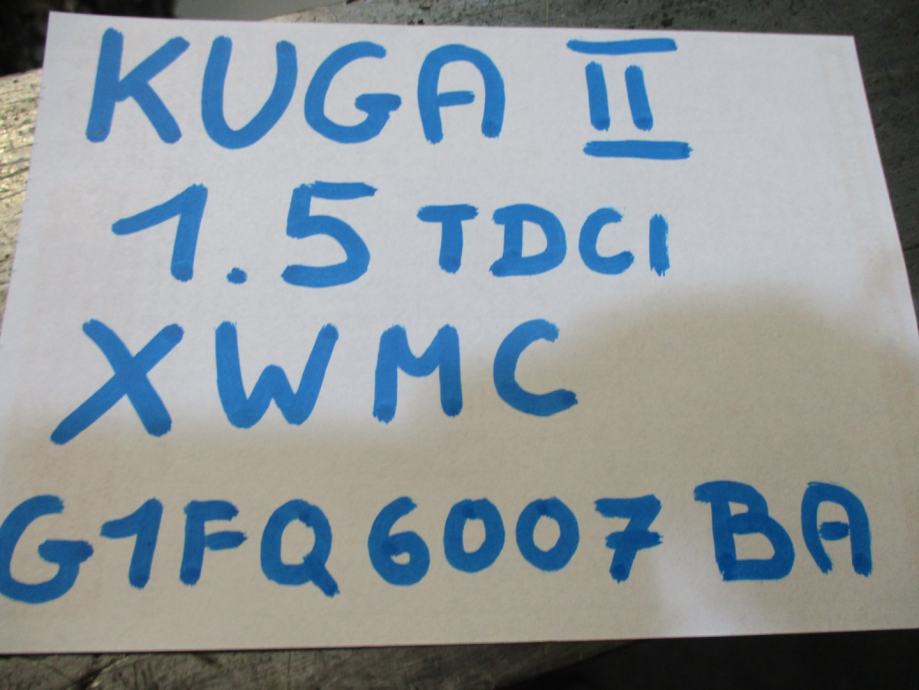 KUGA II
1.5 TDCI
XWMC
G1FQ6007BA